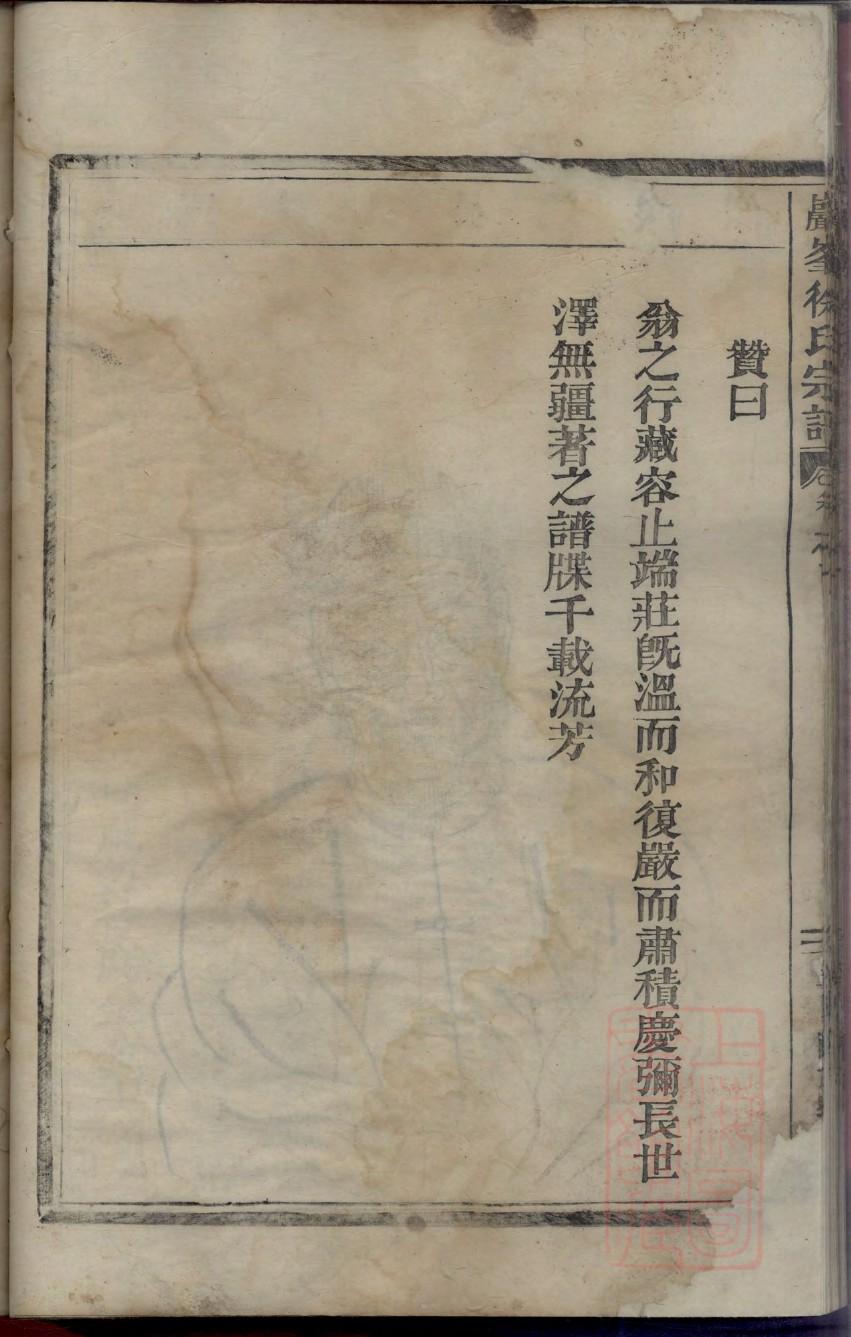 巖峯徐氏宗譜
贊曰
翁之行藏容止端莊旣溫而和復嚴而肅積慶彌長世
澤無疆著之譜牒千載流芳